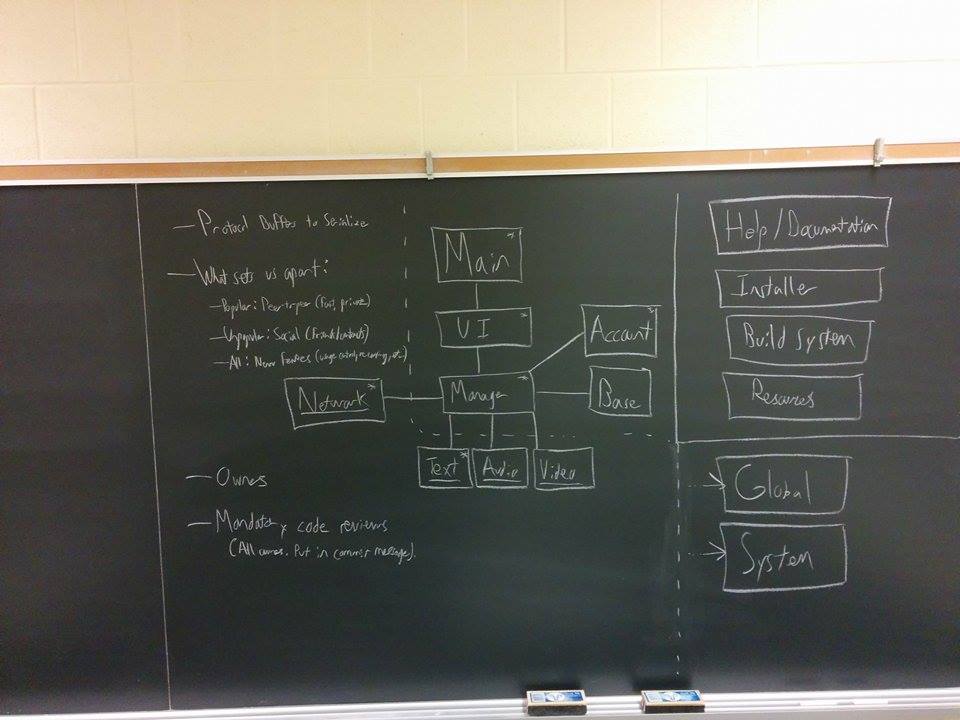 — Protocol Buffers to Serialize
— What sets us apart:
— Popular: Peer-to-peer (Fast, private)
— Unpopular: Social (Friends/contacts)
— All: New Features (
— Owners
— Mandatory code reviews
(All owners. Put in commit message).
Main *
UI *
Account *
Manager *
Network *
Base
Text *
Audio
Video
Help / Documentation
Installer
Build System
Resources
Global
System